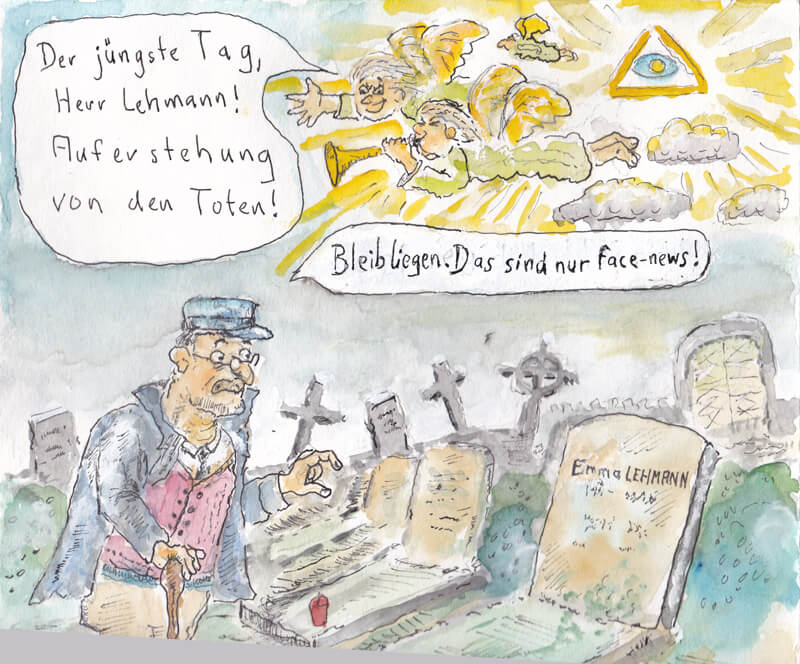 Der jüngste Tag,
Herr Lehmann!
Auferstehung
von den Toten!
Bleib liegen. Das sind nur Face-news!
Emma LEHMANN